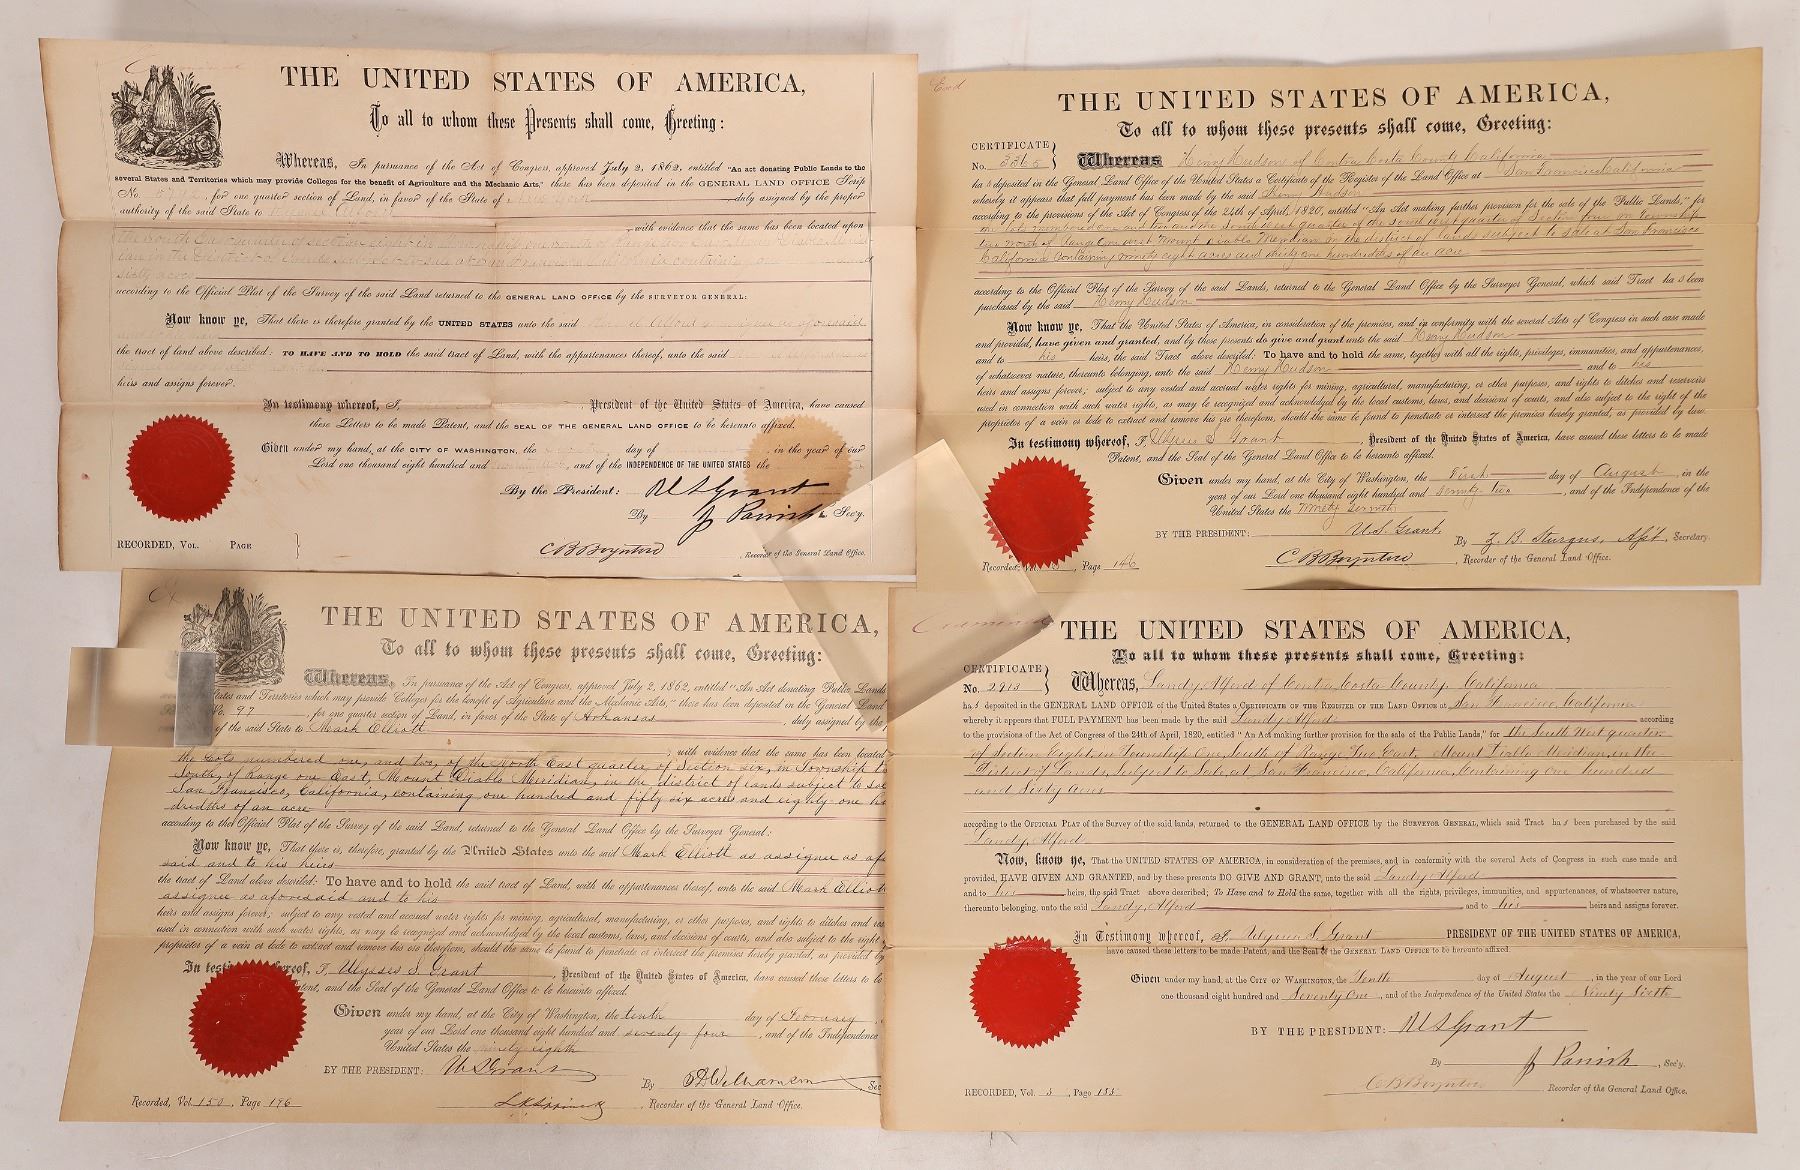 THE UNITED STATES OF AMERICA,
To all to whom these Presents shall come, Greeting:
Whereas, In pursuance of the Act of Congress, approved July 2, 1862, entitled "An act donating Public Lands to the
several States and Territories which may provide Colleges for the benefit of Agriculture and the Mechanic Arts," there has been deposited in the GENERAL LAND OFFICE Scrip
No. for one quarter section of Land, in favor of the State of New York duly assigned by the proper
authority of the said State to
with evidence that the same has been located upon
sixty acres
according to the Official Plat of the Survey of the said Land returned to the GENERAL LAND OFFICE by the SURVEYOR GENERAL:
Now know ye, That there is therefore granted by the UNITED STATES unto the said
the tract of land above described: TO HAVE AND TO HOLD the said tract of Land, with the appurtenances thereof, unto the said
heirs and assigns forever.
In testimony whereof, I, , President of the United States of America, have caused
these Letters to be made Patent, and the SEAL OF THE GENERAL LAND OFFICE to be hereunto affixed.
Given under my hand, at the CITY OF WASHINGTON, the day of , in the year of our
Lord one thousand eight hundred and , and of the INDEPENDENCE OF THE UNITED STATES the
By the President: U S Grant
By J Parrish, Sec'y.
RECORDED, Vol. Page
C B Boynton, Recorder of the General Land Office.
Exd
THE UNITED STATES OF AMERICA,
To all to whom these presents shall come, Greeting:
CERTIFICATE
No. 3365 Whereas Henry Hudson of Contra Costa County California
has deposited in the General Land Office of the United States a Certificate of the Register of the Land Office at San Francisco California
whereby it appears that full payment has been made by the said Henry Hudson
according to the provisions of the Act of Congress of the 24th of April, 1820, entitled "An Act making further provision for the sale of the Public Lands," for
the lots numbered one and two and the South West quarter of the South West quarter of Section four in Township
North of Range One West Mount Diablo Meridian in the district of lands subject to sale at San Francisco
California Containing ninety eight acres and thirty one hundredths of an acre
according to the Official Plat of the Survey of the said Lands, returned to the General Land Office by the Surveyor General, which said Tract has been
purchased by the said Henry Hudson
Now know ye, That the United States of America, in consideration of the premises, and in conformity with the several Acts of Congress in such case made
and provided, have given and granted, and by these presents do give and grant unto the said Henry Hudson
and to his heirs, the said Tract above described: To have and to hold the same, together with all the rights, privileges, immunities, and appurtenances,
of whatsoever nature, thereunto belonging, unto the said Henry Hudson and to his
heirs and assigns forever; subject to any vested and accrued water rights for mining, agricultural, manufacturing, or other purposes, and rights to ditches and reservoirs
used in connection with such water rights, as may be recognized and acknowledged by the local customs, laws, and decisions of courts, and also subject to the right of the
proprietor of a vein or lode to extract and remove his ore therefrom, should the same be found to penetrate or intersect the premises hereby granted, as provided by law.
In testimony whereof, I, Ulysses S. Grant, President of the United States of America, have caused these letters to be made
Patent, and the Seal of the General Land Office to be hereunto affixed.
Given under my hand, at the City of Washington, the first day of August, in the
year of our Lord one thousand eight hundred and seventy two, and of the Independence of the
United States the Ninety Seventh
BY THE PRESIDENT: U. S. Grant
By Z. B. Sturgus, Ass't, Secretary.
Recorded, Vol. 3, Page 146
C B Boynton, Recorder of the General Land Office.
THE UNITED STATES OF AMERICA,
To all to whom these presents shall come, Greeting:
Whereas, In pursuance of the Act of Congress, approved July 2, 1862, entitled "An Act donating Public Lands
States and Territories which may provide Colleges for the benefit of Agriculture and the Mechanic Arts," there has been deposited in the General Land
No. 97, for one quarter section of Land, in favor of the State of Arkansas, duly assigned by the
of the said State to Mark Elliott
, with evidence that the same has been located
the Lots numbered one, and two, of the North East quarter of Section six, in Township
South, of Range one East, Mount Diablo Meridian, in the district of lands subject to
San Francisco, California, containing one hundred and fifty six acres and eighty-one
dredths of an acre
according to the Official Plat of the Survey of the said Land, returned to the General Land Office by the Surveyor General:
Now know ye, That there is, therefore, granted by the United States unto the said Mark Elliott as assignee as
said and to his heirs
the tract of Land above described: To have and to hold the said tract of Land, with the appurtenances thereof, unto the said Mark Elliott
assignee as aforesaid and to his
heirs and assigns forever; subject to any vested and accrued water rights for mining, agricultural, manufacturing, or other purposes, and rights to ditches and
used in connection with such water rights, as may be recognized and acknowledged by the local customs, laws, and decisions of courts, and also subject to the right
proprietor of a vein or lode to extract and remove his ore therefrom, should the same be found to penetrate or intersect the premises hereby granted, as provided by
In testimony whereof, I, Ulysses S. Grant, President of the United States of America, have caused these letters to be
Patent, and the Seal of the General Land Office to be hereunto affixed.
Given under my hand, at the City of Washington, the tenth day of February,
year of our Lord one thousand eight hundred and seventy four, and of the Independence
United States the ninety eighth
BY THE PRESIDENT: U S Grant
By
Recorded, Vol. 150, Page 176
, Recorder of the General Land Office.
Examined
THE UNITED STATES OF AMERICA,
To all to whom these presents shall come, Greeting:
CERTIFICATE
No. 2913 Whereas, Sandy Alford of Contra Costa County, California
has deposited in the GENERAL LAND OFFICE of the United States a CERTIFICATE OF THE REGISTER OF THE LAND OFFICE at San Francisco, California
whereby it appears that FULL PAYMENT has been made by the said Sandy Alford according
to the provisions of the Act of Congress of the 24th of April, 1820, entitled "An Act making further provision for the sale of the Public Lands," for the South West quarter
of Section Eight, in Township One, South of Range Two East, Mount Diablo Meridian, in the
District of Lands, Subject to Sale, at San Francisco, California, Containing One hundred
and Sixty Acres
according to the OFFICIAL PLAT of the Survey of the said lands, returned to the GENERAL LAND OFFICE by the SURVEYOR GENERAL, which said Tract has been purchased by the said
Sandy Alford
Now, know ye, That the UNITED STATES OF AMERICA, in consideration of the premises, and in conformity with the several Acts of Congress in such case made and
provided, HAVE GIVEN AND GRANTED, and by these presents DO GIVE AND GRANT, unto the said Sandy Alford
and to his heirs, the said Tract above described; To Have and to Hold the same, together with all the rights, privileges, immunities, and appurtenances, of whatsoever nature,
thereunto belonging, unto the said Sandy, Alford and to his heirs and assigns forever.
In Testimony whereof, I, Ulysses S. Grant PRESIDENT OF THE UNITED STATES OF AMERICA,
have caused these letters to be made Patent, and the Seal of the GENERAL LAND OFFICE to be hereunto affixed.
Given under my hand, at the CITY OF WASHINGTON, the Tenth day of August, in the year of our Lord
one thousand eight hundred and Seventy One, and of the Independence of the United States the Ninety Sixth
BY THE PRESIDENT: U S Grant
By J Parrish, Sec'y.
RECORDED, Vol. 3, Page 155
C B Boynton, Recorder of the General Land Office.